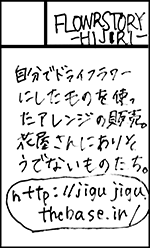 FLOWRSTORY
-HIJIRI-
自分でドライフラワー
にしたものを使っ
たアレンジの販売。
花屋さんにありそ
うでないものたち。
http://jigujigu.
thebase.in/